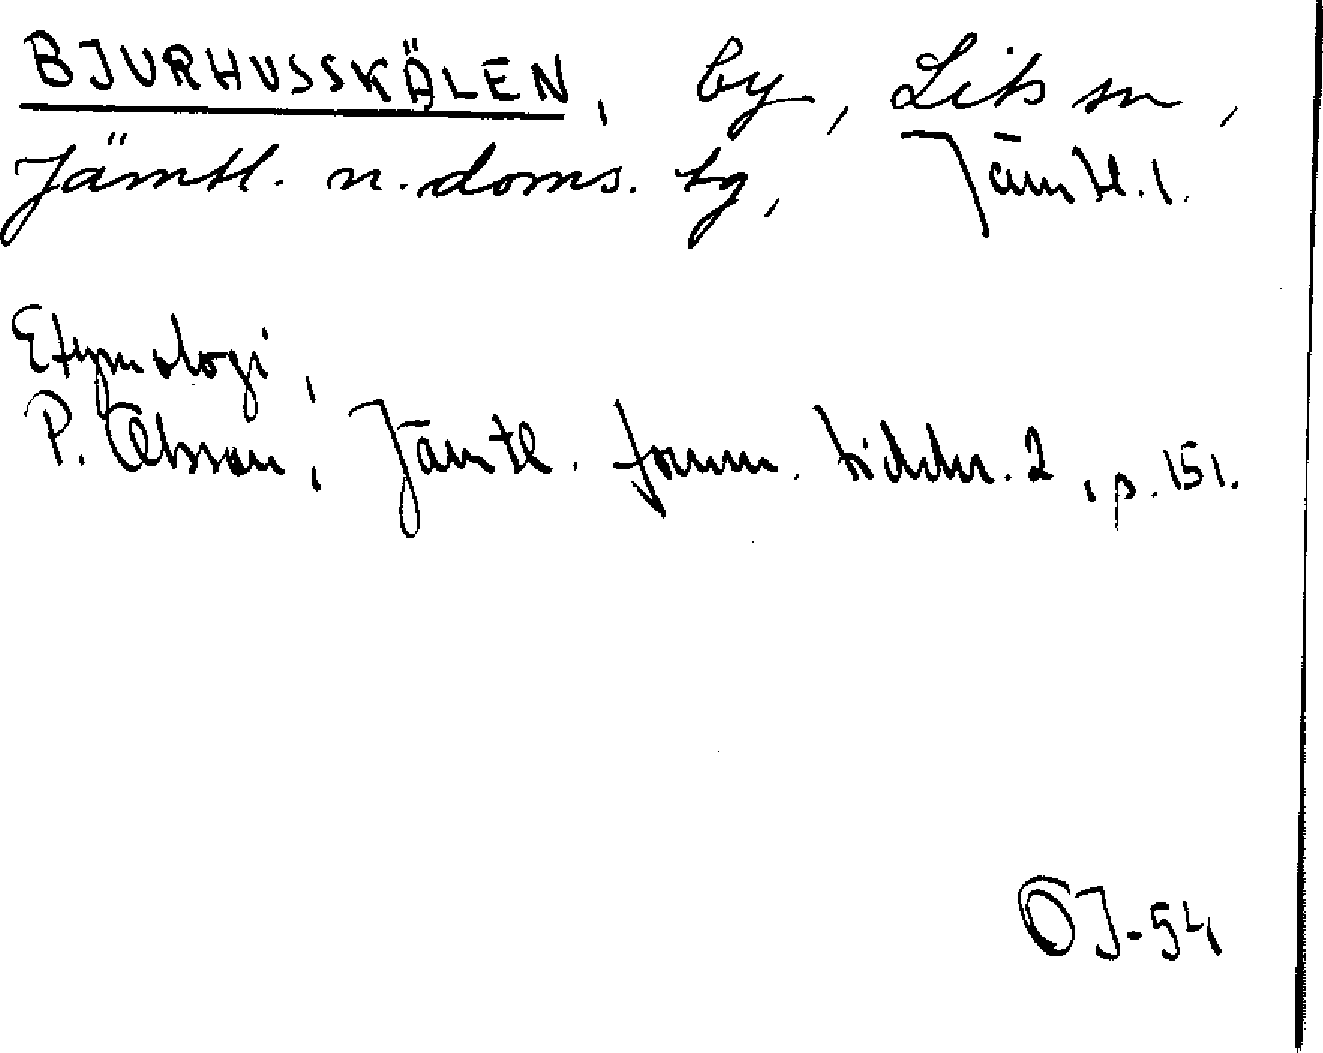 BJURHUSSKÄLEN, by, Lits sn,
Jämtl. n. doms. tg, Jämtl. l.
Etymologi,
P. Olsson, Jämtl. fornm. tidskr. 2, p. 151.
OJ-54